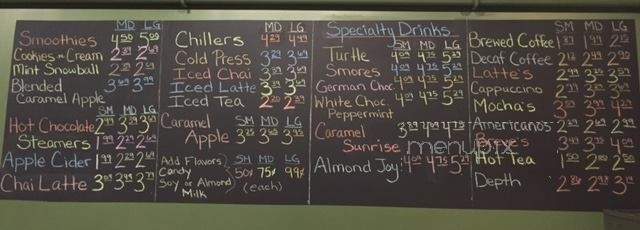 MD LG
Smoothies 4.50 5.00
Cookies n Cream 2.39 2.69
Mint Snowball 2.39 2.69
Blended 3.69 3.99
Caramel Apple
SM MD LG
Hot Chocolate 2.99 3.39 3.69
Steamers 1.99 2.29 2.69
Apple Cider 1.99 2.29 2.69
Chai Latte 3.09 3.49 3.79
MD LG
Chillers 4.29 4.99
Cold Press 3.29 3.69
Iced Chai 3.39 3.69
Iced Latte 3.39 3.69
Iced Tea 2.20 2.39
Caramel SM MD LG
Apple 3.25 3.65 3.95
Add Flavors, SM MD LG
Candy 50¢ 75¢ 99¢
Soy or Almond (each)
Milk
Specialty Drinks
SM MD LG
Turtle 4.09 4.75 5.29
Smores 4.09 4.75 5.29
German Choc. 4.09 4.75 5.29
White Choc. 4.09 4.75 5.29
Peppermint
Caramel 3.89 4.09 4.75
Sunrise
Almond Joy: 4.09 4.75 5.29
SM MD LG
Brewed Coffee 1.89 1.99 2.15
Decaf Coffee 2.15 2.49 2.90
Latte's 2.99 3.25 3.59
Cappuccino 2.99 3.25 3.59
Mocha's 3.59 3.99 4.29
Americanos 2.39 2.69 2.99
3.49 3.75 4.09
Hot Tea 1.50 2.00 2.50
Depth 2.86 2.98 3.19
menupix